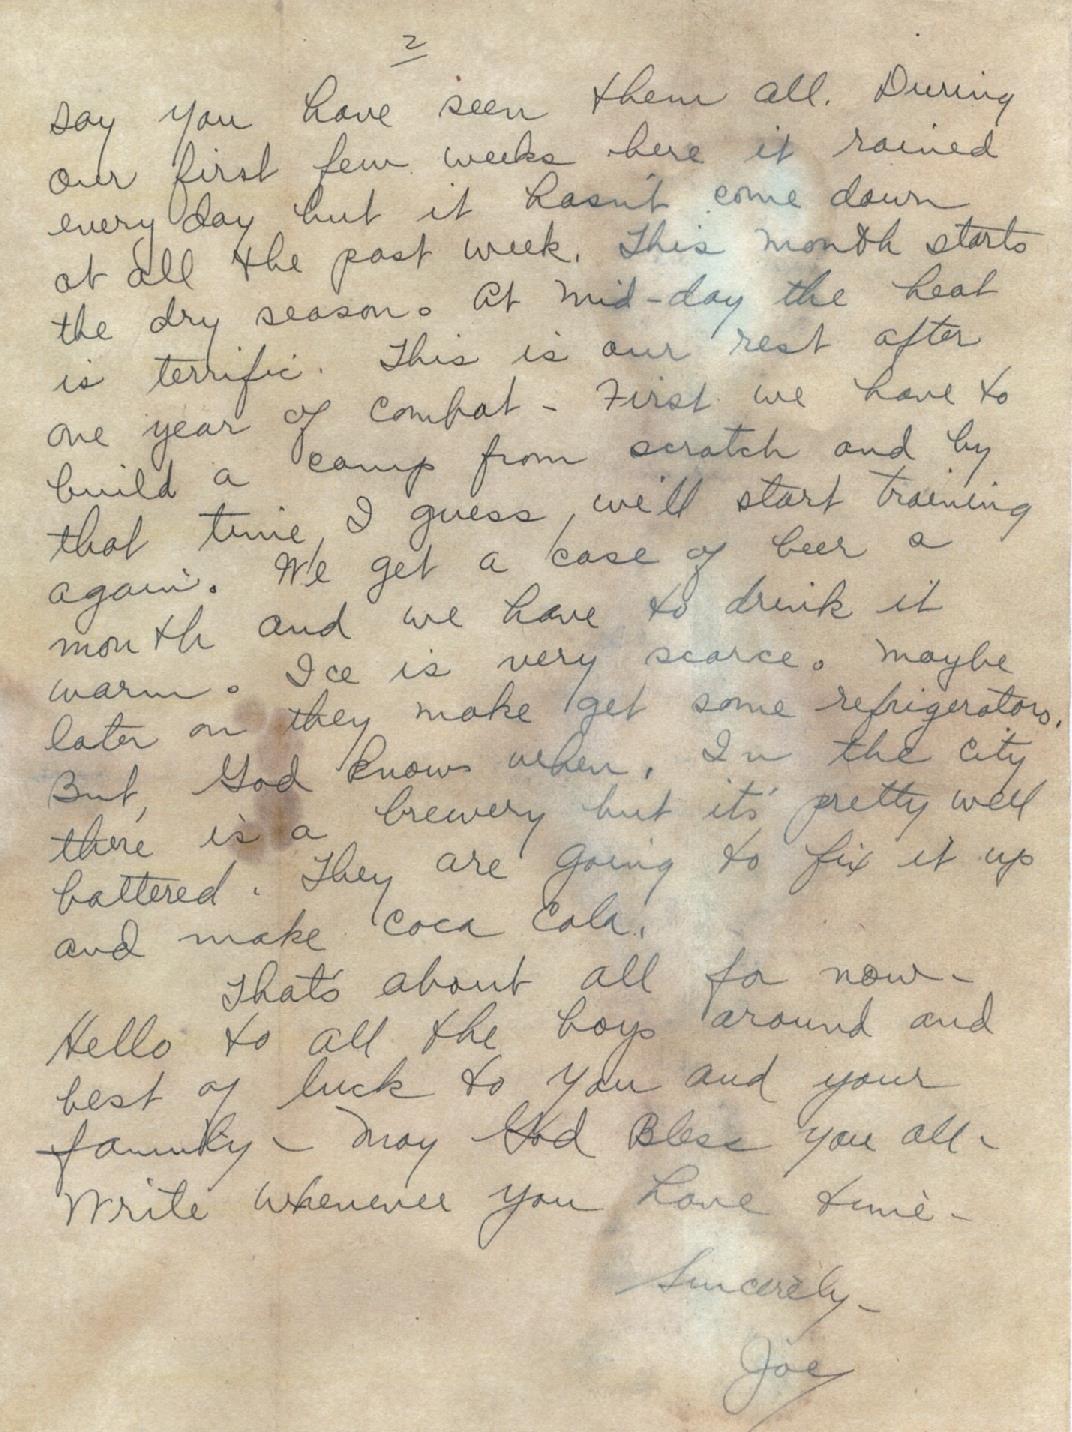 2
say you have seen them all. During
our first few weeks here it rained
every day but it hasn't come down
at all the past week. This month starts
the dry season. At mid-day the heat
is terrific. This is our rest after
one year of combat - First we have to
build a camp from scratch and by
that time, I guess, we'll start training
again. We get a case of beer a
month and we have to drink it
warm. Ice is very scarce. Maybe
later on they make get some refrigerators.
But, God knows when. In the city
there is a brewery but it's pretty well
battered. They are going to fix it up
and make Coca Cola.
That's about all for now -
Hello to all the boys around and
best of luck to you and your
family - May God Bless you all -
Write whenever you have time -
Sincerely -
Joe